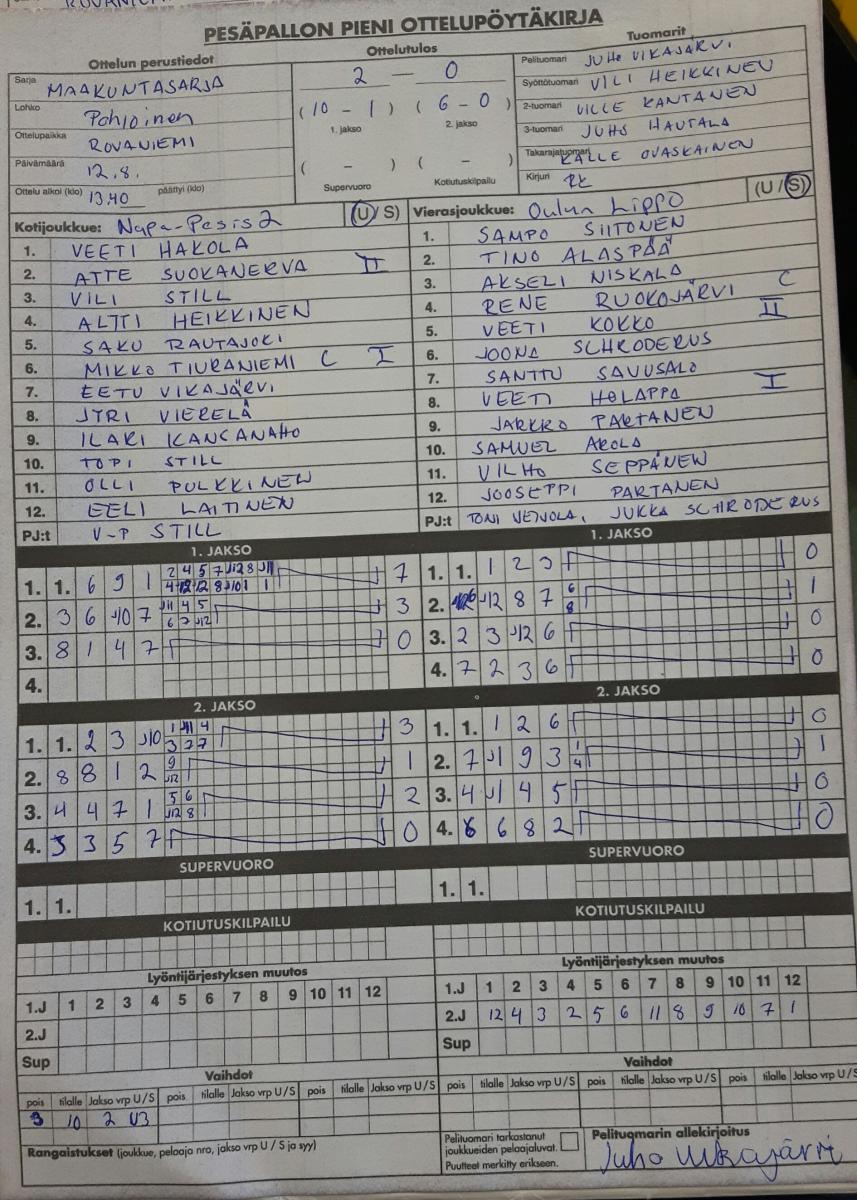 PESÄPALLON PIENI OTTELUPÖYTÄKIRJA
Ottelun perustiedot
Sarja MAAKUNTASARJA
Lohko Pohjoinen
Ottelupaikka ROVANIEMI
Päivämäärä 12.8.
Ottelu alkoi (klo) 13.40 päättyi (klo)
Ottelutulos
2 – 0
(10 – 1) (6 – 0)
1. jakso 2. jakso
( – ) ( – )
Supervuoro Kotiutuskilpailu
Tuomarit
Pelituomari JUHO VIKAJÄRVI
Syöttötuomari VILI HEIKKINEN
2-tuomari VILLE KANTANEN
3-tuomari JUHO HAUTALA
Takarajatuomari KALLE OVASKAINEN
Kirjuri
Kotijoukkue: Napa-Pesis 2 (U/S)
1. VEETI HAKOLA
2. ATTE SUOKANERVA II
3. VILI STILL
4. ALTTI HEIKKINEN
5. SAKU RAUTAJOKI
6. MIKKO TIURANIEMI C I
7. EETU VIKAJÄRVI
8. JYRI VIERELÄ
9. ILARI KANGANAHO
10. TOPI STILL
11. OLLI PULKKINEN
12. EELI LAITINEN
PJ:t V-P STILL
Vierasjoukkue: Oulun Lippo (U/S)
1. SAMPO SIITONEN
2. TINO ALASPÄÄ
3. AKSELI NISKALA
4. RENE RUOKOJÄRVI C
5. VEETI KOKKO II
6. JOONA SCHRODERUS
7. SANTTU SAVUSALO
8. VEETI HOLAPPA I
9. JARKKO PARTANEN
10. SAMUEL AROLA
11. VILHO SEPPÄNEN
12. JOOSEPPI PARTANEN
PJ:t TONI VEIVOLA, JUKKA SCHRODERUS
1. JAKSO
1. 1. 6 9 1 7
2. 3 6 J10 7 J11 4 5 6 7 J12 3
3. 8 1 4 7 0
4.
2. JAKSO
1. 1. 2 3 J10 3
2. 8 8 1 2 9 J12 1
3. 4 4 7 1 5 6 J12 8 2
4. 3 3 5 7 0
SUPERVUORO
1. 1.
KOTIUTUSKILPAILU
Lyöntijärjestyksen muutos
1.J 1 2 3 4 5 6 7 8 9 10 11 12
2.J
Sup
Vaihdot
pois tilalle Jakso vrp U/S pois tilalle Jakso vrp U/S pois tilalle Jakso vrp U/S
3 10 2 U3
Rangaistukset (joukkue, pelaaja nro, jakso vrp U / S ja syy)
1. JAKSO
1. 1. 1 2 3 0
2. J12 8 7 6 8 1
3. 2 3 J12 6 0
4. 7 2 3 6 0
2. JAKSO
1. 1. 1 2 6 0
2. 7 J1 9 3 1 4 1
3. 4 J1 4 5 0
4. 6 6 8 2 0
SUPERVUORO
1. 1.
KOTIUTUSKILPAILU
Lyöntijärjestyksen muutos
1.J 1 2 3 4 5 6 7 8 9 10 11 12
2.J 12 4 3 2 5 6 11 8 9 10 7 1
Sup
Vaihdot
pois tilalle Jakso vrp U/S pois tilalle Jakso vrp U/S pois tilalle Jakso vrp U/S
Pelituomari tarkastanut
joukkueiden pelaajaluvat.
Puutteet merkitty erikseen.
Pelituomarin allekirjoitus
Juho Vikajärvi